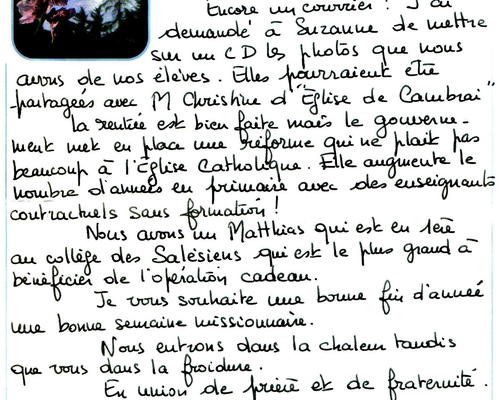 Encore un courrier ! J'ai
demandé à Suzanne de mettre
sur un CD les photos que nous
avons de nos élèves. Elles pourraient être
partagées avec M Christine d'"Église de Cambrai"
la rentrée est bien faite mais le gouverne-
ment met en place une réforme qui ne plait pas
beaucoup à l'Église Catholique. Elle augmente le
nombre d'années en primaire avec des enseignants
contractuels sans formation !
Nous avons un Matthias qui est en 1ère
au collège des Salésiens qui est le plus grand à
bénéficier de l'opération cadeau.
Je vous souhaite une bonne fin d'année
une bonne semaine missionnaire.
Nous entrons dans la chaleur tandis
que vous dans la froidure.
En union de prière et de fraternité.